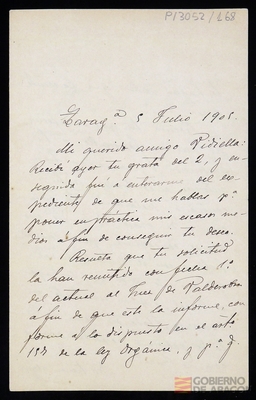 P/3052/L68
Zarag.ª 5 Julio 1905.
Mi querido amigo Vidiella:
Recibí ayer tu grata del 2, y en-
seguida fuí a enterarme del ex-
pediente de que me hablas pª
poner en práctica mis escasos me-
dios a fin de conseguir tu deseo.
Resulta que tu solicitud
la han remitido con fecha 1º
del actual al Juez de Valderrobres
á fin de que este la informe, con
forme a lo dispuesto en el artº
157 de la ley Orgánica, y pª q.
GOBIERNO
DE ARAGON